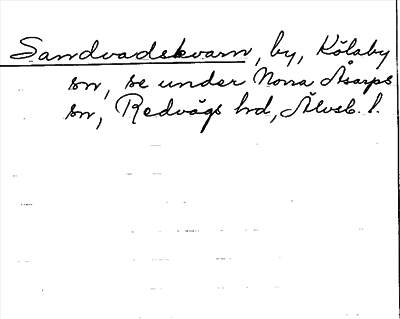 Sandvadskvarn, by, Kölaby
sn, se under Norra Åsarps
sn, Redvägs hd, Älvsb. l.